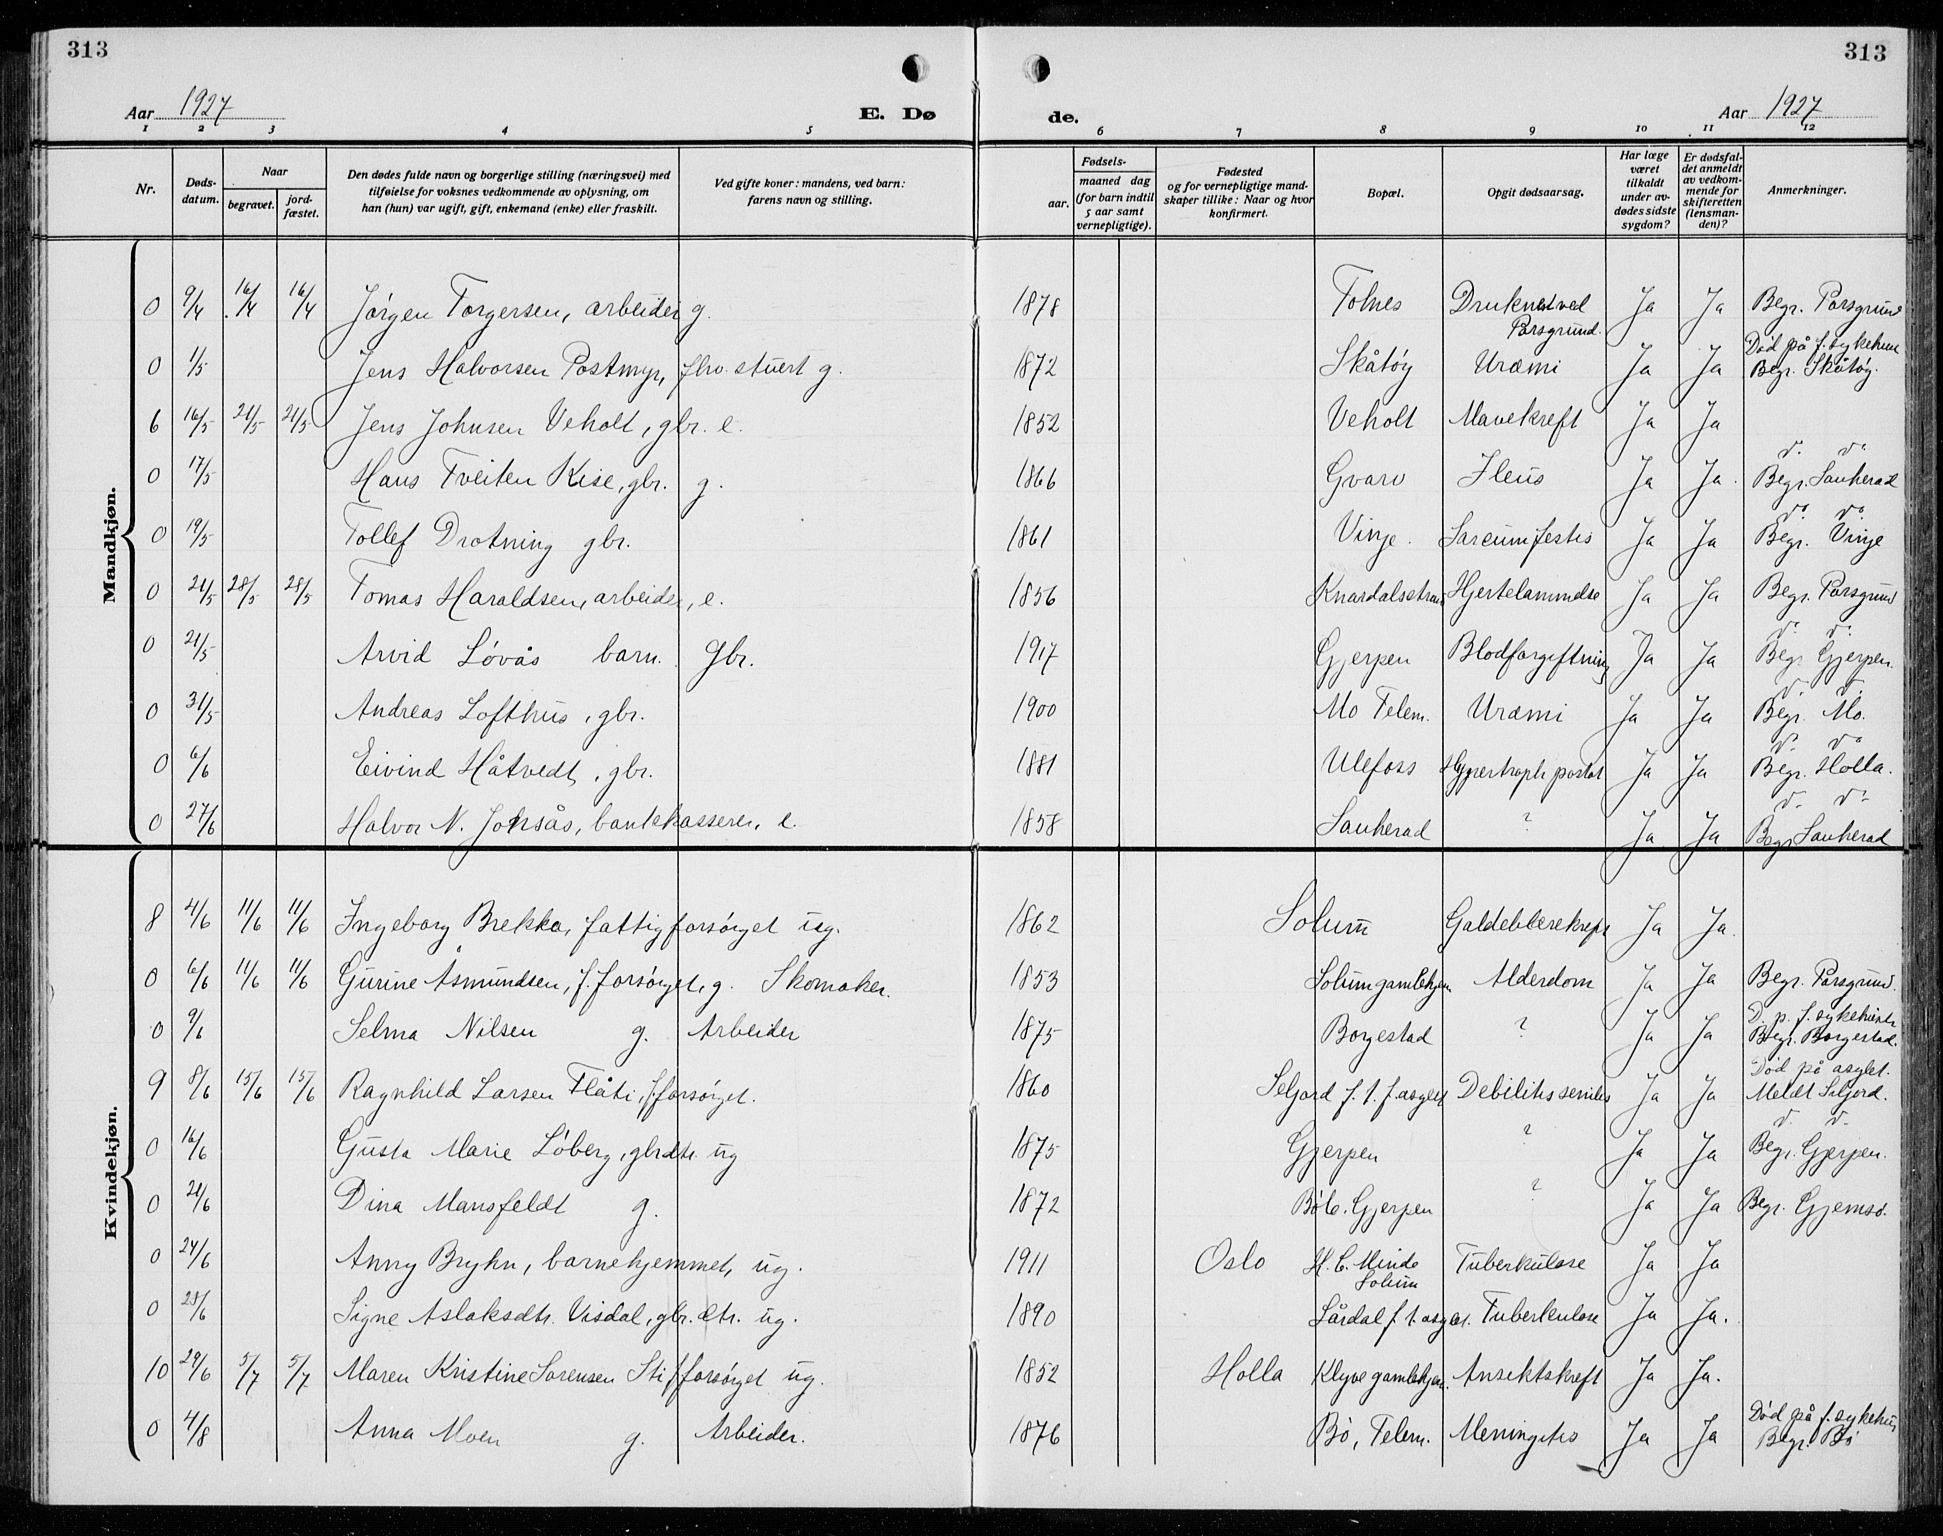 313
313
Aar 1927
E. Dø
de.
Aar 1927
1 2 3 4 5 6 7 8 9 10 11 12
Nr.
Dødsdatum.
Naar
begravet.
jordfæstet.
Den dødes fulde navn og borgerlige stilling (næringsvei) med
tilføielse for voksnes vedkommende av oplysning, om
han (hun) var ugift, gift, enkemand (enke) eller fraskilt.
Ved gifte koner: mandens, ved barn:
farens navn og stilling.
Fødsels-
aar.
maaned dag
(for barn indtil
5 aar samt
vernepligtige).
Fødested
og for vernepligtige mand-
skaper tillike: Naar og hvor
konfirmert.
Bopæl.
Opgit dødsaarsag.
Har læge
været
tilkaldt
under av-
dødes sidste
sygdom?
Er dødsfal-
det anmeldt
av vedkom-
mende for
skifteretten
(lensman-
den)?
Anmerkninger.
Mandkjøn.
0 9/4 16/4 16/4 Jørgen Torgersen, arbeider g. 1878 Tolnes Druknet ved Porsgrund. Ja Ja Begr. Porsgrund
0 1/5 Jens Halvorsen Postmyr, fhv. stuert g. 1872 Skåtøy Uræmi Ja Ja Død på f. sykehus Begr. Skåtøy.
6 16/5 21/5 21/5 Jens Johnsen Veholt, gbr. e. 1852 Veholt Mavekreft Ja Ja
0 17/5 Hans Tveiten Kise, gbr. g. 1866 Gvarv Ileus Ja Ja d° d° Begr. Sauherad
0 19/5 Tollef Drotning gbr. 1861 Vinje. Ja Ja d° d° Begr. Vinje
0 21/5 28/5 28/5 Tomas Haraldsen, arbeider, e. 1856 Knardalsstrand Hjertelammelse Ja Ja Begr. Porsgrund
0 21/5 Arvid Løvås barn. Gbr. 1917 Gjerpen Blodforgiftning Ja Ja d° d° Begr. Gjerpen.
0 31/5 Andreas Lofthus, gbr. 1900 Mo Telem. Uræmi Ja Ja d° d° Begr. Mo.
0 6/6 Eivind Håtvedt, gbr. 1881 Ulefoss Hypertroph postat Ja Ja d° d° Begr. Holla.
0 27/6 Halvor N. Jonsås, bankkasserer, e. 1858 Sauherad ? Ja Ja d° d° Begr Sauherad
Kvindekjøn.
8 4/6 11/6 11/6 Ingeborg Brekka, fattigforsørget ug. 1862 Solum Galdeblærekreft Ja Ja.
0 6/6 11/6 11/6 Gurine Åsmundsen, f. forsørget, g. Skomaker. 1853 Solum gamlehjem Alderdom Ja Ja Begr. Porsgrund.
0 9/6 Selma Nilsen g. Arbeider 1875 Borgestad ? Ja Ja D. p. f. sykehuset Begr. Borgestad.
9 8/6 15/6 15/6 Ragnhild Larsen Flåti, f.forsørget. 1860 Seljord f. t. f. asylet Debilitis senilis Ja Ja Død på asylet. Meldt Seljord.
0 16/6 Gusta Marie Løberg, gbrdtr. ug 1875 Gjerpen ? Ja Ja d° d° Begr. Gjerpen.
0 21/6 Dina Mansfeldt g. 1872 Bøle. Gjerpen ? Ja Ja Begr. Gjemsø.
0 24/6 Anny Bryhn, barnehjemmet, ug. 1911 Oslo H. C. Minde Solum Tuberkulose Ja Ja
0 28/6 Signe Aslaksdtr. Visdal, gbr. dtr. ug. 1890 Lårdal f. t. asylet. Tuberkulose Ja Ja.
10 29/6 5/7 5/7 Maren Kristine Sorensen Sti f forsørget ug. 1852 Holla Klyve gamlehjem. Ansiktskreft Ja Ja.
0 4/8 Anna Moen g. Arbeider. 1876 Bø, Telem. Meningitis Ja Ja Død på f. sykehus Begr. Bø